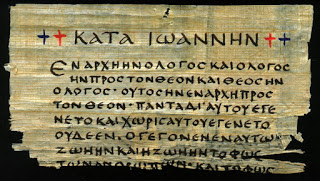 ΚΑΤΑ ΙΩΑΝΝΗΝ
ΕΝΑΡΧΗΗΝΟΛΟΓΟΣΚΑΙΟΛΟΓΟΣ
ΗΝΠΡΟΣΤΟΝΘΕΟΝΚΑΙΘΕΟΣΗΝ
ΟΛΟΓΟΣ· ΟΥΤΟΣΗΝΕΝΑΡΧΗΠΡΟΣ
ΤΟΝΘΕΟΝ· ΠΑΝΤΑΔΙ'ΑΥΤΟΥΕΓΕ
ΝΕΤΟΚΑΙΧΩΡΙΣΑΥΤΟΥΕΓΕΝΕΤΟ
ΟΥΔΕΕΝ· ΟΓΕΓΟΝΕΝΕΝΑΥΤΩ
ΖΩΗΗΝΚΑΙΗΖΩΗΗΝΤΟΦΩΣ